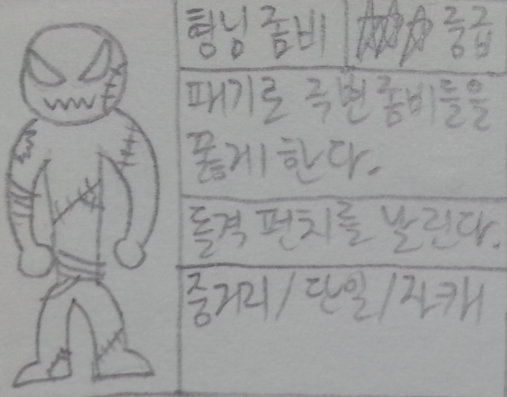 형님 좀비 ☆☆☆ 중급
패기로 주변 좀비들을
쫄게 한다.
돌격 펀치를 날린다.
중거리/단일/자캐